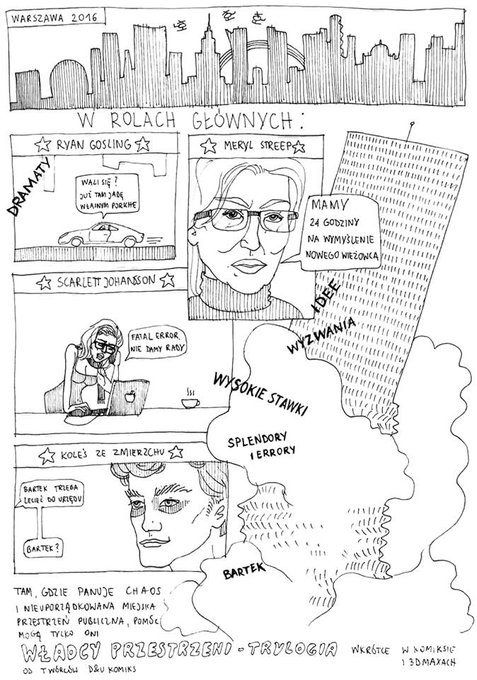 WARSZAWA 2016
W ROLACH GŁÓWNYCH:
DRAMATY
RYAN GOSLING
WALI SIĘ?
JUŻ TAM JADĘ
WŁASNYM PORRHE
MERYL STREEP
MAMY
24 GODZINY
NA WYMYŚLENIE
NOWEGO WIEŻOWCA
SCARLETT JOHANSSON
FATAL ERROR,
NIE DAMY RADY
IDEE
WYZWANIA
WYSOKIE STAWKI
SPLENDORY
I ERRORY
BARTEK
KOLEŚ ZE ZMIERZCHU
BARTEK TRZEBA
LECIEĆ DO URZĘDU
BARTEK?
TAM, GDZIE PANUJE CHAOS
I NIEUPORZĄDKOWANA MIEJSKA
PRZESTRZEŃ PUBLICZNA, POMÓC
MOGĄ TYLKO ONI
WŁADCY PRZESTRZENI - TRYLOGIA
OD TWÓRCÓW D&U KOMIKS
WKRÓTCE W KOMIKSIE
I 3DMAXACH